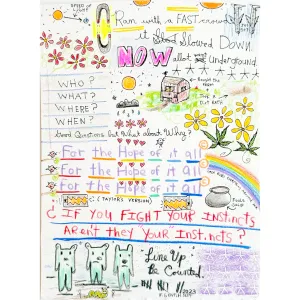 SPEED OF LIGHT
Ran with a FAST crowd
it Slowed Down
NOW allot Underground
WHO?
WHAT?
WHERE?
WHEN?
Bought the Farm
DIRT NAP
Good Questions but What about Why?
For the Hope of it all
For the Hope of it all
For the Hope of it all
(TAYLOR'S VERSION)
FOOLS GOLD
¿ IF YOU FIGHT YOUR INSTINCTS
ARENT they YOUR INStincts?
Line Up
Be Counted
2023